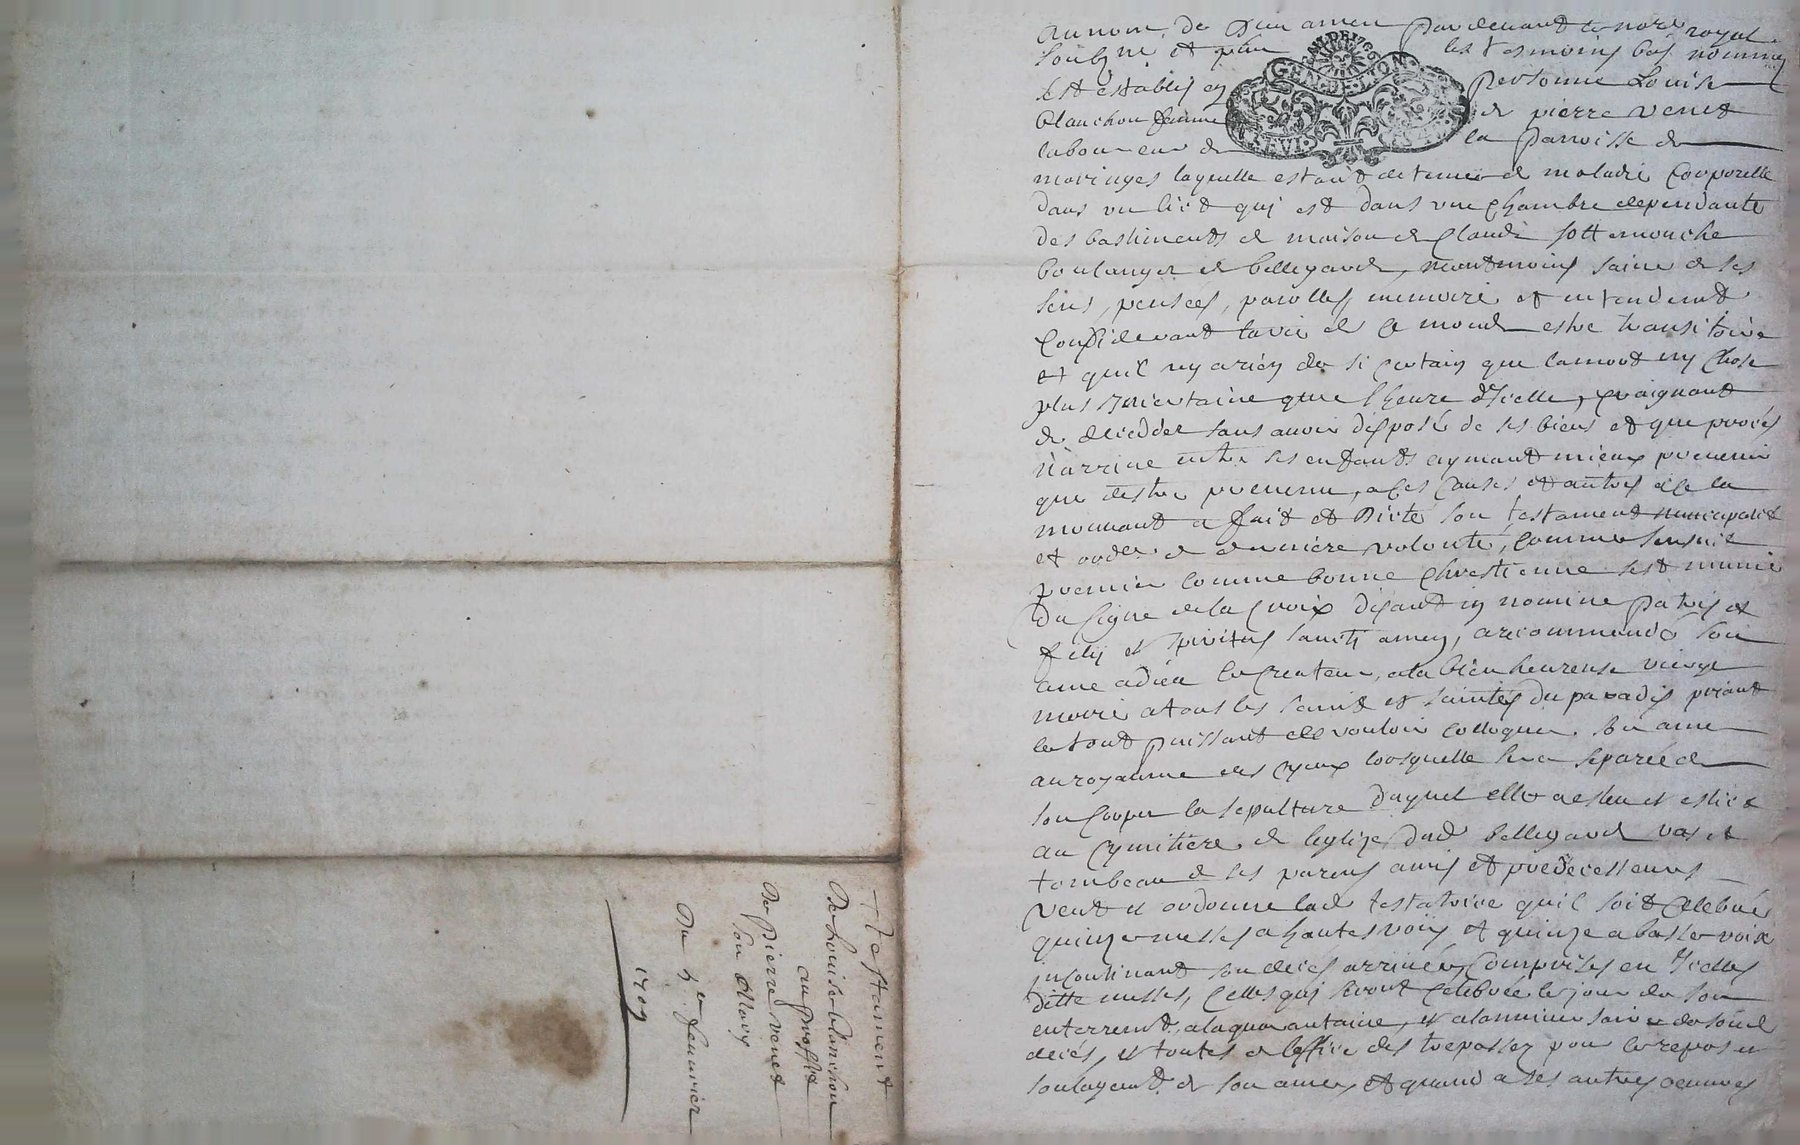 Testament
De Louise blanchon
au proffict
De pierre venet
son Mary
Du 4e feuvrier
1709
Au nom de Dieu amen Pardevant le nore royal
soubzne et plus les tesmoins bas nommes
GEN. DE LYON
s'est establÿ en personne Louise
blanchon femme de pierre venet
laboureur de la parroisse de
maringes laquelle estant detenue de maladie Corporelle
dans un lict quj est dans une chambre dependante
des bastiments de maison de Claude sottemouche
boulanger de bellegarde, neantmoins saine de ses
sens, pensées, parolles, memoire et entendemt
Considerant la vie de ce monde estre transitoire
et quil ny a rien de si certain que la mort ny chose
plus Incertaine que l'heure d'Icelle, craignant
de decedder sans avoir disposé de ses biens et que procés
n'arrive entre ses enfants aymant mieux prevenir
que destre prevenue, a ces causes et autres de ce la
mouvant a fait et Dicté son testament nuncupatif
et ordce de derniere volonté, comme sensuit
premier comme bonne Chrestienne sest munie
Du signe de la Croix disant in nomine patris et
filij et spiritus sancti amen, a recommandé son
ame a dieu le Createur, a la bien heureuse vierge
marie a tous les saints et saintes du paradis priant
le tout puissant de vouloir colloquer son ame
au royaume des cyeux lorsquelle sera separée de
son Corps la sepulture duquel elle a esleu et eslict
au cymitiere de leglize dud bellegarde vas et
tombeau de ses parens amis et predecesseurs
veut et ordonne lad testatrice quil soit celebré
quinze messes a hautes voix et quinze a basse voix
incontinant son decés arrivé, comprises en Icelles
ditte messes, Celles quj seront Celebrée le jour de son
enterremt, a la quarantaine, et a lanniversaire de sond
decés, et toutes de l'office des trepassez pour le repos et
soulagemt de son ame, et quand a ses autres oeuvres